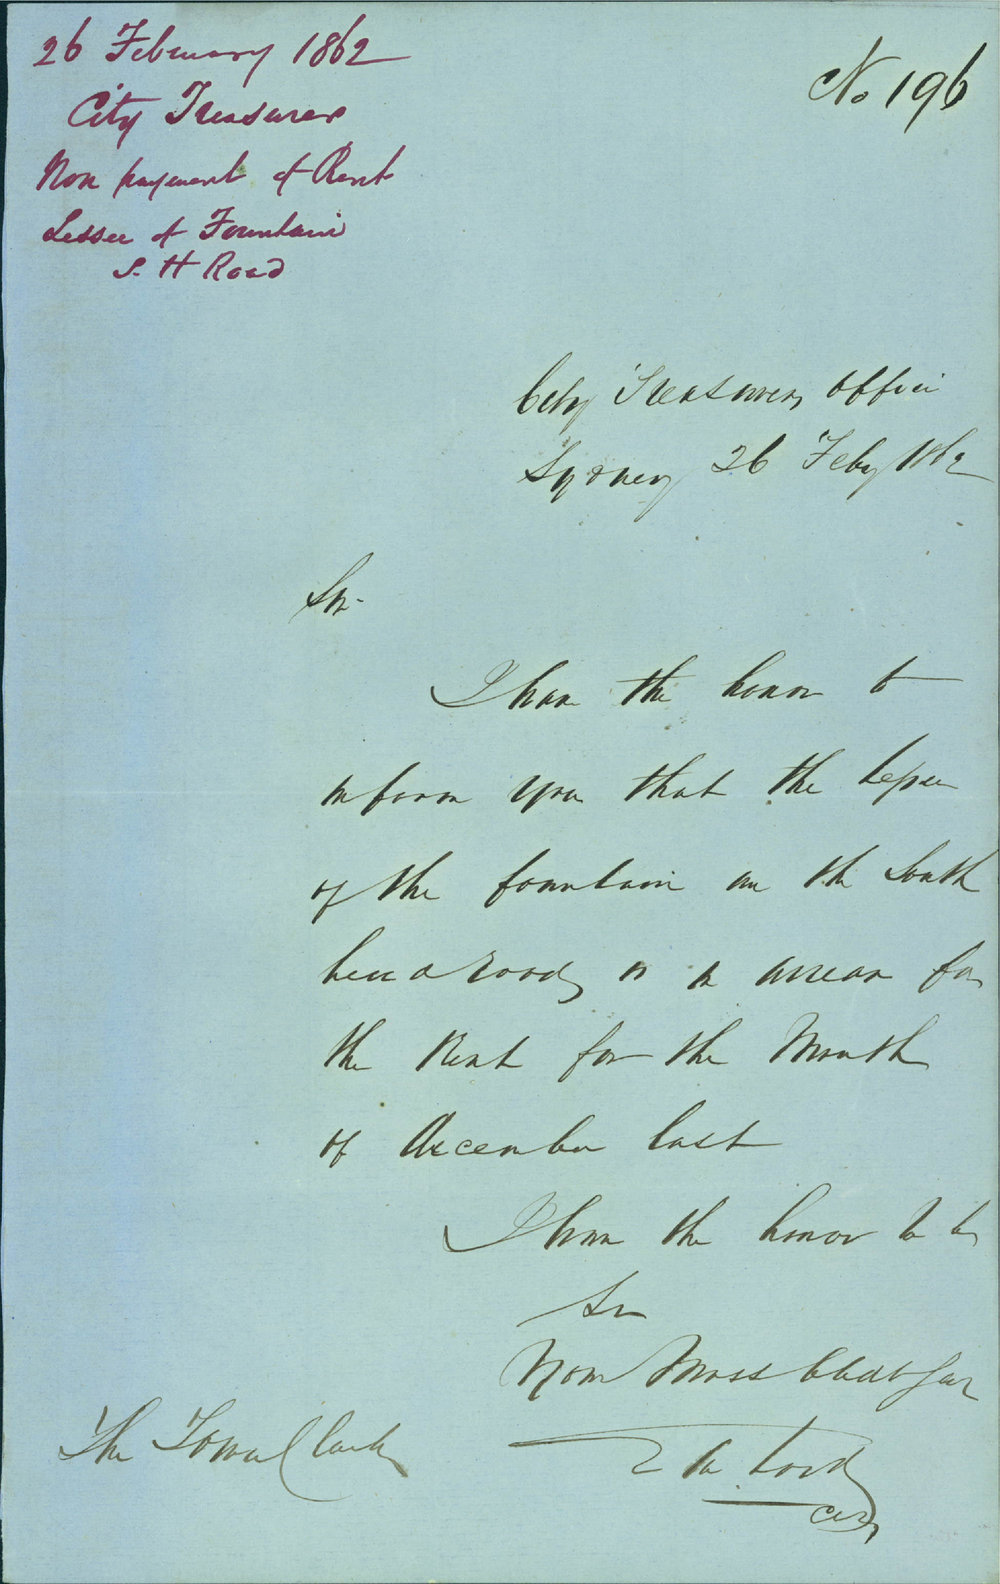 26 February 1862
City Treasurer
Non payment of Rent
Lessee of Fountain
S. H Road
No 196
City Treasurers Office
Sydney 26 Feby 1862
Sir
I have the honor to
inform you that the Lessee
of the fountain on the South
head road is in arrear for
the Rent for the Month
of December last
I have the honor to be
Sir
Your Most Obdt Ser
Lord
The Town Clerk